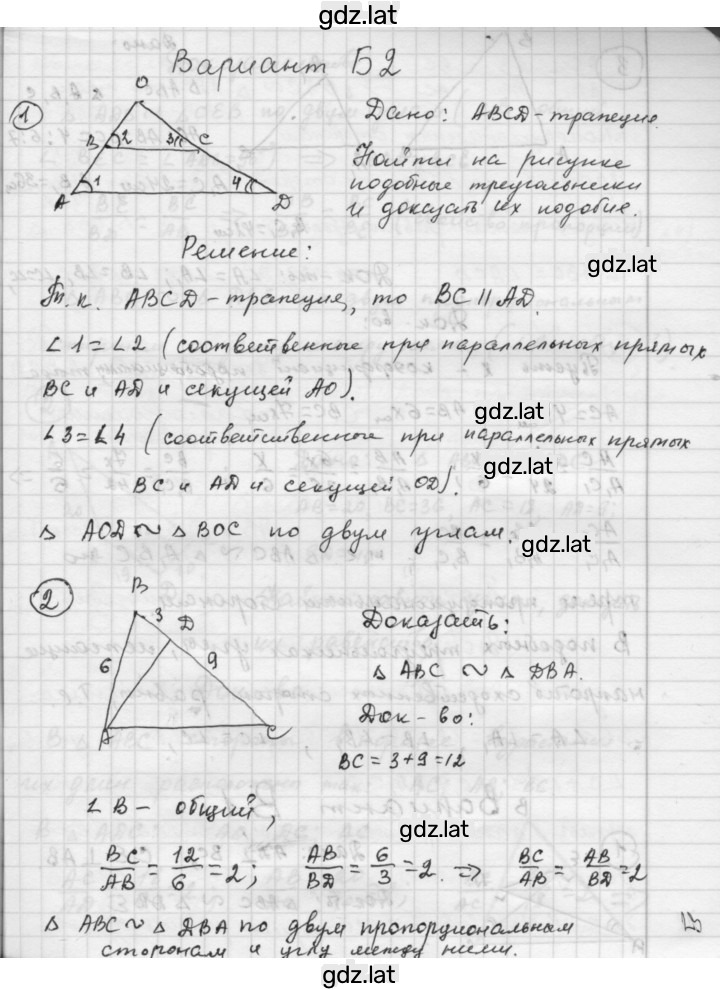 gdz.lat
Вариант Б2
1
O
B 2 3 C
A 1 4 D
Дано: ABCD - трапеция.
Найти на рисунке
подобные треугольники
и доказать их подобие.
Решение:
gdz.lat
Т.к. ABCD - трапеция, то BC || AD.
∠1 = ∠2 (соотвественные при параллельных прямых
BC и AD и секущей AO).
gdz.lat
∠3 = ∠4 (соответственные при параллельных прямых
gdz.lat
BC и AD и секущей OD).
△ AOD ~ △ BOC по двум углам.
gdz.lat
2
B
3
D
6
9
A
C
Доказать:
△ ABC ~ △ DBA.
Док-во:
BC = 3+9 = 12
∠B - общий,
gdz.lat
BC/AB = 12/6 = 2; AB/BD = 6/3 = 2. => BC/AB = AB/BD = 2
△ ABC ~ △ DBA по двум пропорциональным
сторонам и углу между ними.
gdz.lat